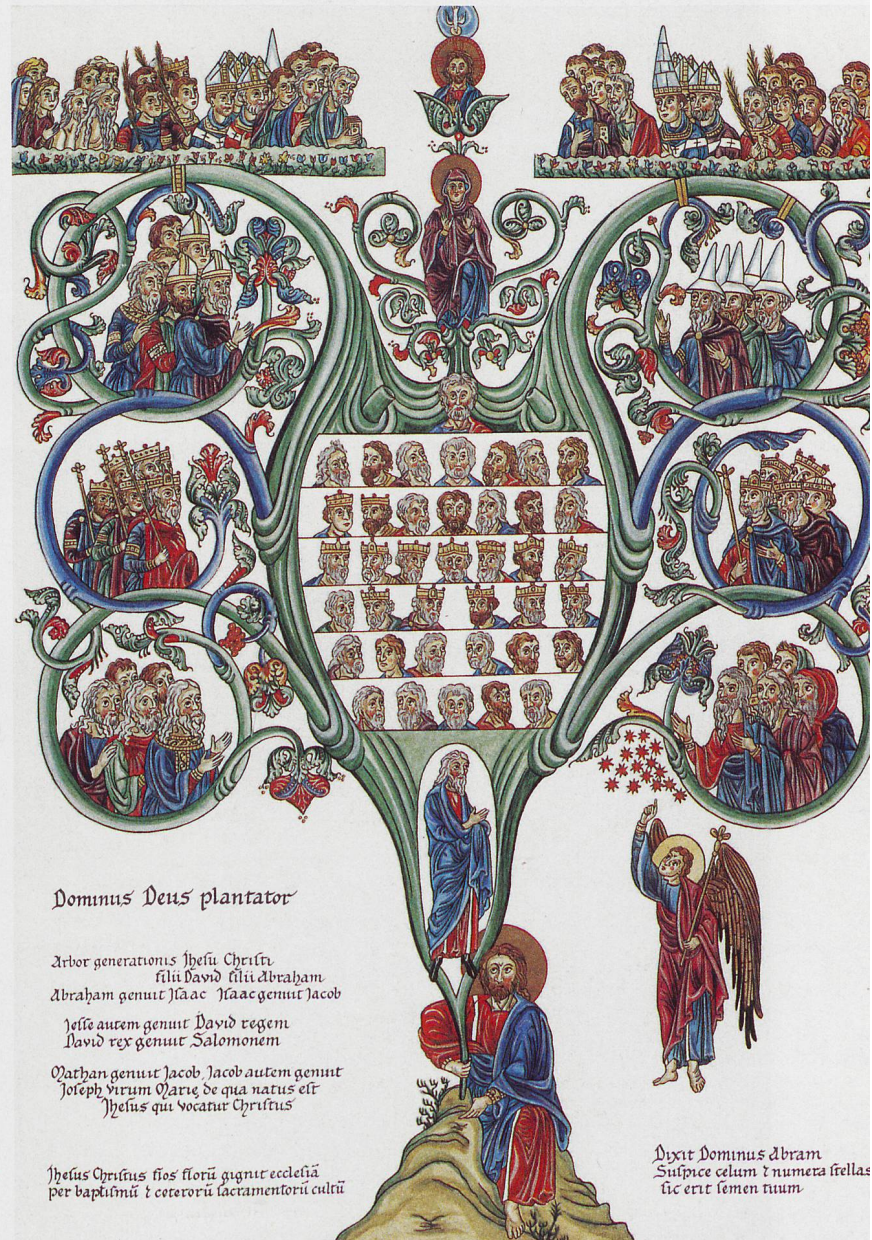 Dominus Deus plantator
Arbor generationis Jhesu Christi
filii David filii Abraham
Abraham genuit Jsaac Jsaac genuit Jacob
Jesse autem genuit David regem
David rex genuit Salomonem
Mathan genuit Jacob, Jacob autem genuit
Joseph virum Marie de qua natus est
Jhesus qui vocatur Christus
Jhesus Christus flos florū gignit ecclesiā
per baptismū ⁊ ceterorū sacramentorū cultū
Dixit Dominus Abram
Suspice celum ⁊ numera stellas
sic erit semen tuum